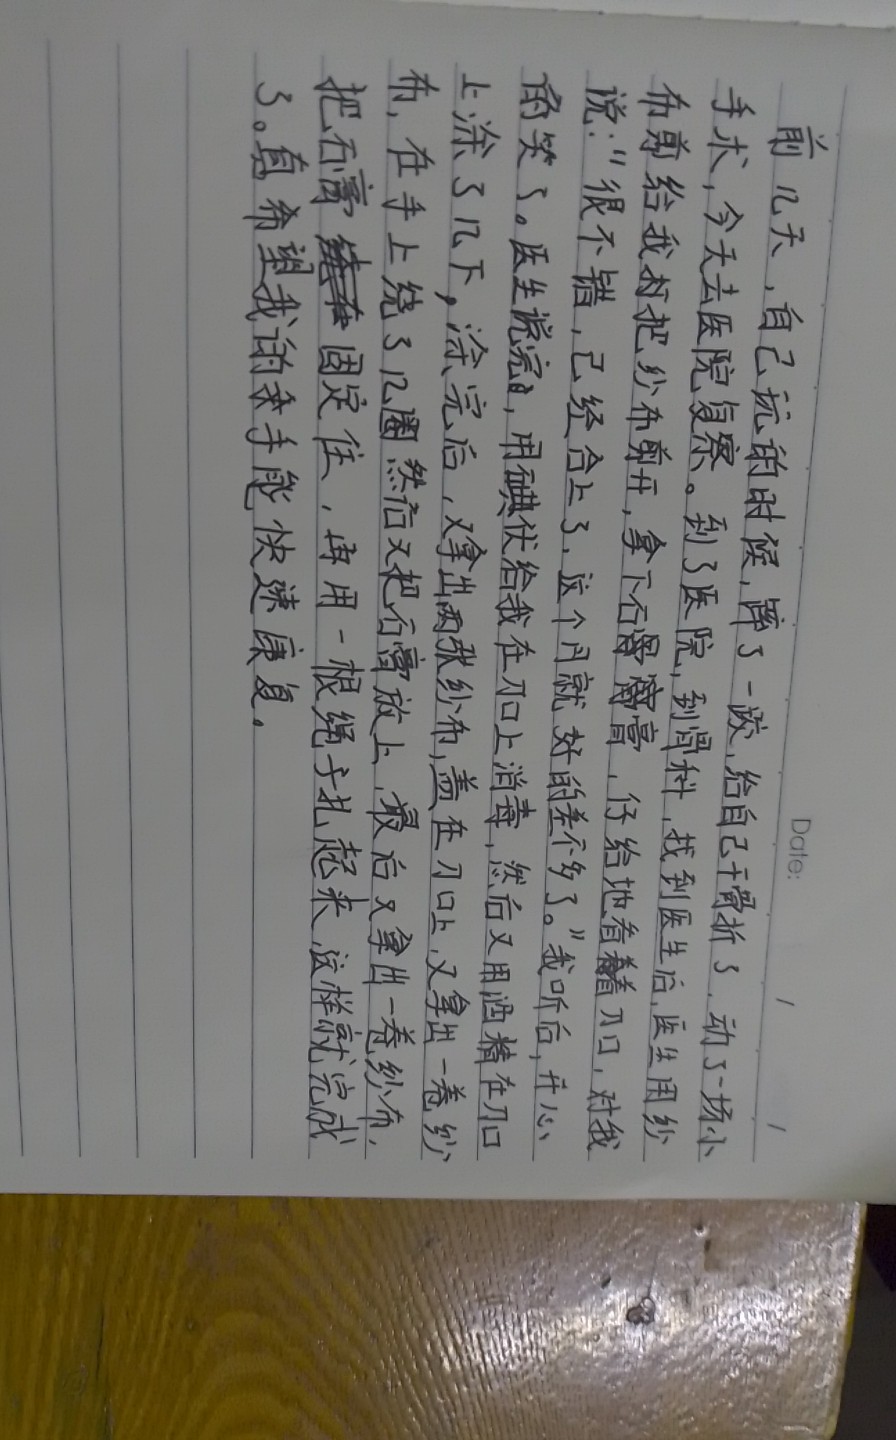 Date: / /
前几天,自己玩的时候,蹿了一跤,给自己干骨折了,动了一场小
手术,今天去医院复察。到了医院,到骨科,找到医生后,医生用纱
布剪给我把纱布剪开,拿下石膏,仔给地看着刀口,对我
说:“很不错,已经合上了,这个月就好的差不多了。”我听后,开心
的笑了。医生说完,用碘伏给我在刀口上消毒,然后又用酒精在刀口
上涂了几下,涂完后,又拿出两张纱布,盖在刀口上,又拿出一卷纱
布,在手上绕了几圈然后又把石膏放上,最后又拿出一卷纱布,
把石膏固定住,再用一根绳子扎起来,这样就完成
了。真希望我的手能快速康复。